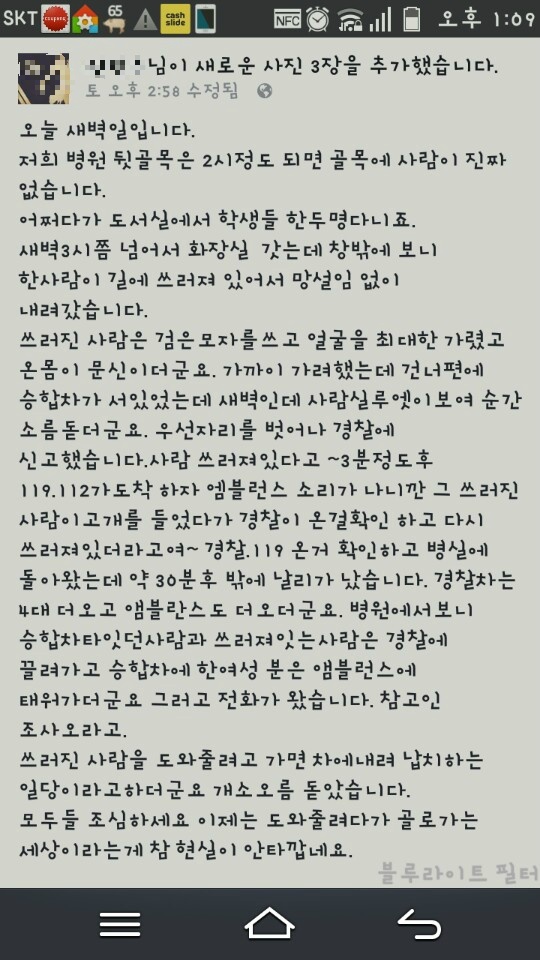 SKT coupang 65 cash slide NFC 오후 1:09
님이 새로운 사진 3장을 추가했습니다.
토 오후 2:58 수정됨
오늘 새벽일입니다.
저희 병원 뒷골목은 2시정도 되면 골목에 사람이 진짜
없습니다.
어쩌다가 도서실에서 학생들 한두명다니죠.
새벽3시쯤 넘어서 화장실 갔는데 창밖에 보니
한사람이 길에 쓰러져 있어서 망설임 없이
내려갔습니다.
쓰러진 사람은 검은모자를쓰고 얼굴을 최대한 가렸고
온몸이 문신이더군요. 가까이 가려했는데 건너편에
승합차가 서있었는데 새벽인데 사람실루엣이보여 순간
소름돋더군요. 우선자리를 벗어나 경찰에
신고했습니다.사람 쓰러져있다고 ~3분정도후
119.112가도착 하자 엠블런스 소리가 나니깐 그 쓰러진
사람이고개를 들었다가 경찰이 온걸확인 하고 다시
쓰러져있더라고여~ 경찰.119 온거 확인하고 병실에
돌아왔는데 약 30분후 밖에 날리가 났습니다. 경찰차는
4대 더오고 앰블란스도 더오더군요. 병원에서보니
승합차타잇던사람과 쓰러져잇는사람은 경찰에
끌려가고 승합차에 한여성 분은 앰블런스에
태워가더군요 그러고 전화가 왔습니다. 참고인
조사오라고.
쓰러진 사람을 도와줄려고 가면 차에내려 납치하는
일당이라고하더군요 개소오름 돋았습니다.
모두들 조심하세요 이제는 도와줄려다가 골로가는
세상이라는게 참 현실이 안타깝네요.
블루라이트 필터